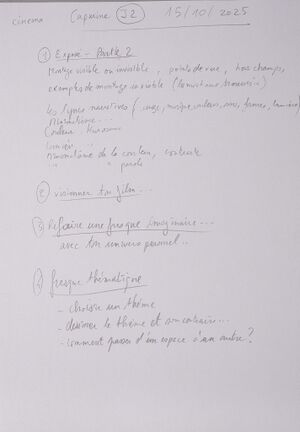 cinema Capucine J2 15/10/2025
① Exposé - Partie 2
Montage visible ou invisible, points de vue, hors champs,
exemples de montage invisible
Les lignes narratives ( musique, couleurs, sons, formes, lumière)
Couleur : Kurosawa
Lumière
de la couleur, contraste
" " parole
② visionner ton film...
③ Refaire une fresque imaginaire...
avec ton univers personnel..
④ fresque thématique
- choisir un thème
- dessiner le thème et son contraire...
- comment passer d'un espace à un autre?